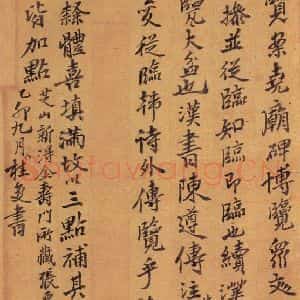 覽案堯廟碑博覽
擦並從臨知臨即臨也續漢
覽大盆也漢書陳遵傳注
爻從臨韓詩外傳覽乎
隸體喜填滿故三點補其
皆加點 芝山新得全壽門所藏張
乙卯九月桂馥書